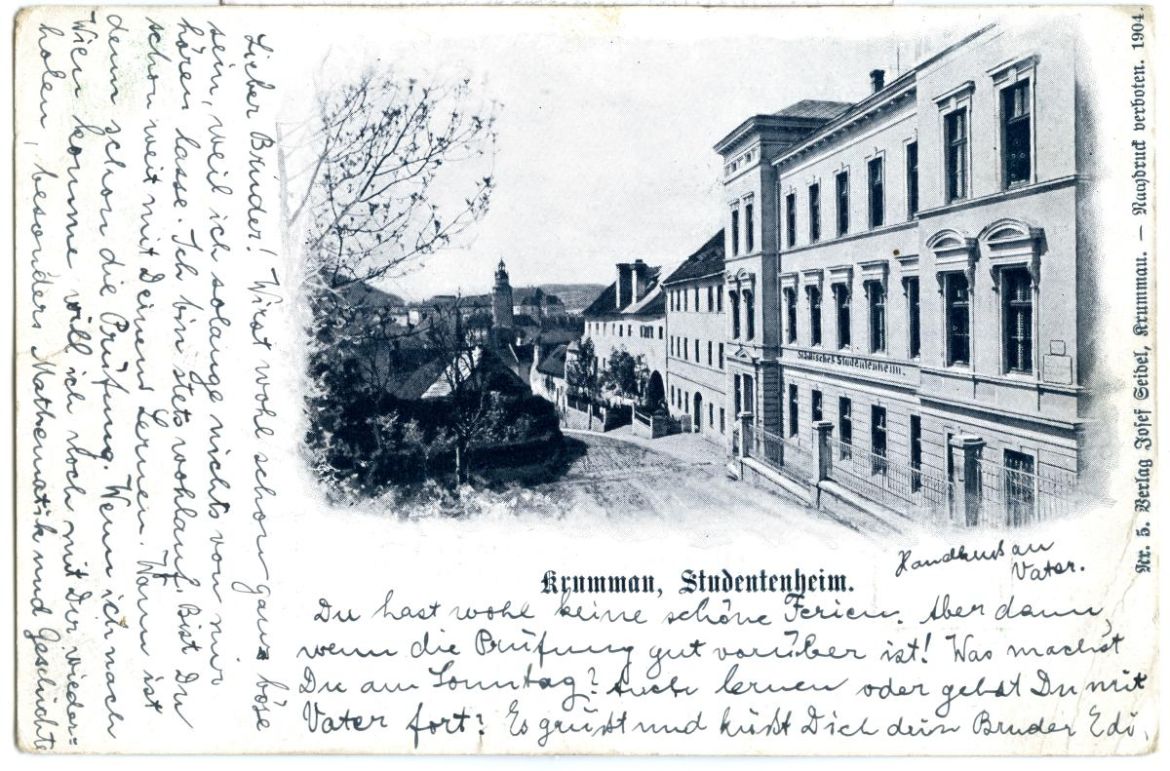 Lieber Bruder! Wirst wohl schon ganz böse
sein, weil ich solange nichts von mir
hören lasse. Ich bin stets wohlauf. Bist Du
schon weit mit Deinem Lernen. Wann ist
denn schon die Prüfung. Wenn ich nach
Wien komme will ich doch mit Dir wieder=
holen, besonders Mathematik und Geschichte
Städtisches Studentenheim.
Krummau, Studentenheim.
Handkuss an
Vater.
Du hast wohl keine schöne Ferien. Aber dann
wenn die Prüfung gut vorüber ist! Was machst
Du am Sonntag? Auch lernen oder gehst Du mit
Vater fort? Es grüßt und küßt Dich dein Bruder Edi.
Nr. 5. Verlag Josef Seidel, Krummau. — Nachdruck verboten. 1904.